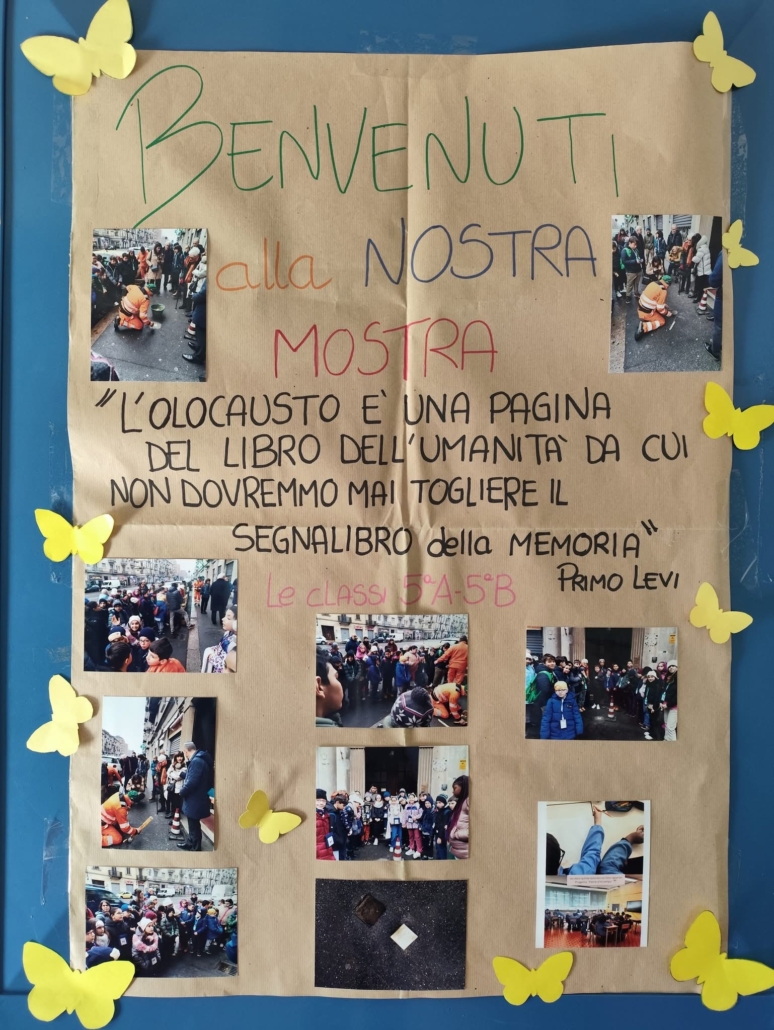 BENVENUTI
alla NOSTRA
MOSTRA
"L'OLOCAUSTO E' UNA PAGINA
DEL LIBRO DELL'UMANITÀ DA CUI
NON DOVREMMO MAI TOGLIERE IL
SEGNALIBRO della MEMORIA"
PRIMO LEVI
Le CLASSI 5°A-5°B